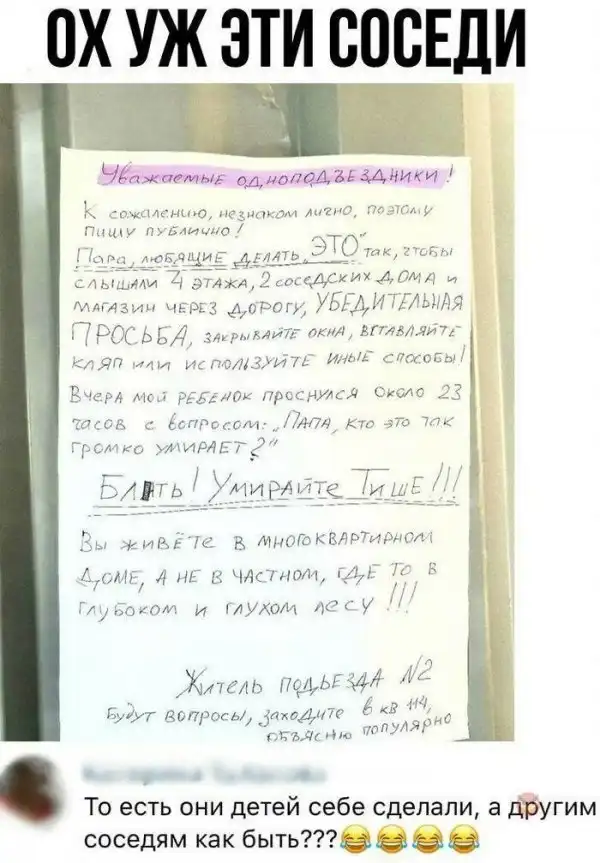 ОХ УЖ ЭТИ СОСЕДИ
Уважаемые одноподъездники!
К сожалению, незнаком лично, поэтому
пишу публично!
Пара, любящие делать „ЭТО" так, чтобы
слышали 4 этажа, 2 соседских дома и
магазин через дорогу, УБЕДИТЕЛЬНАЯ
ПРОСЬБА, закрывайте окна, вставляйте
кляп или используйте иные способы!
Вчера мой ребёнок проснулся около 23
часов с вопросом: „Папа, кто это так
громко умирает?"
Блять! Умирайте Тише!!!
Вы живёте в многоквартирном
доме, а не в частном, где то в
глубоком и глухом лесу!!!
Житель подъезда №2
Будут вопросы, заходите в кв 114,
объясню популярно
То есть они детей себе сделали, а другим
соседям как быть???😂😂😂😂